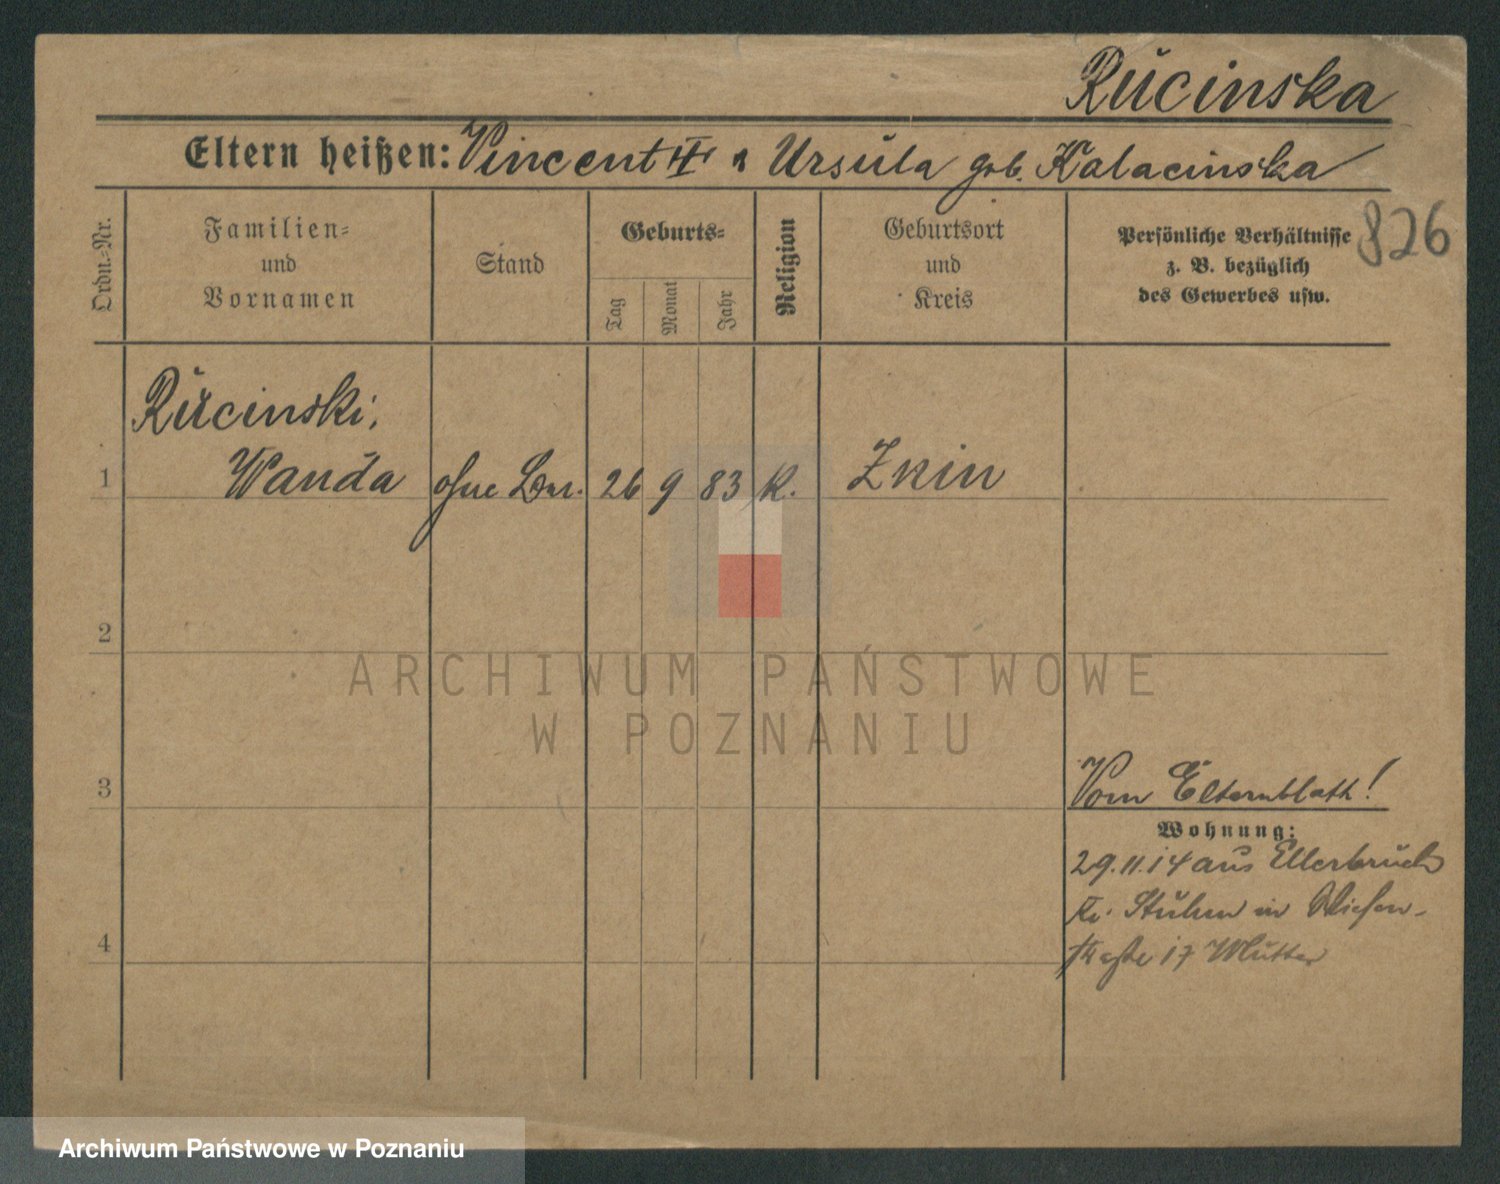 Rucinska
Eltern heißen: Vincent II u Ursula geb. Kalacinska
Ordn.-Nr.
Familien-
und
Vornamen
Stand
Geburts-
Tag
Monat
Jahr
Religion
Geburtsort
und
Kreis
Persönliche Verhältnisse
z. B. bezüglich
des Gewerbes usw.
826
Rucinski,
1 Wanda ohne 26 9 83 k. Znin
2
ARCHIWUM PAŃSTWOWE
W POZNANIU
3 Vom Elternblatt!
Wohnung:
29.11.14 aus Ellerbruch
Kr. Stuhm in Wiesen-
4 straße 17 Mutter
Archiwum Państwowe w Poznaniu